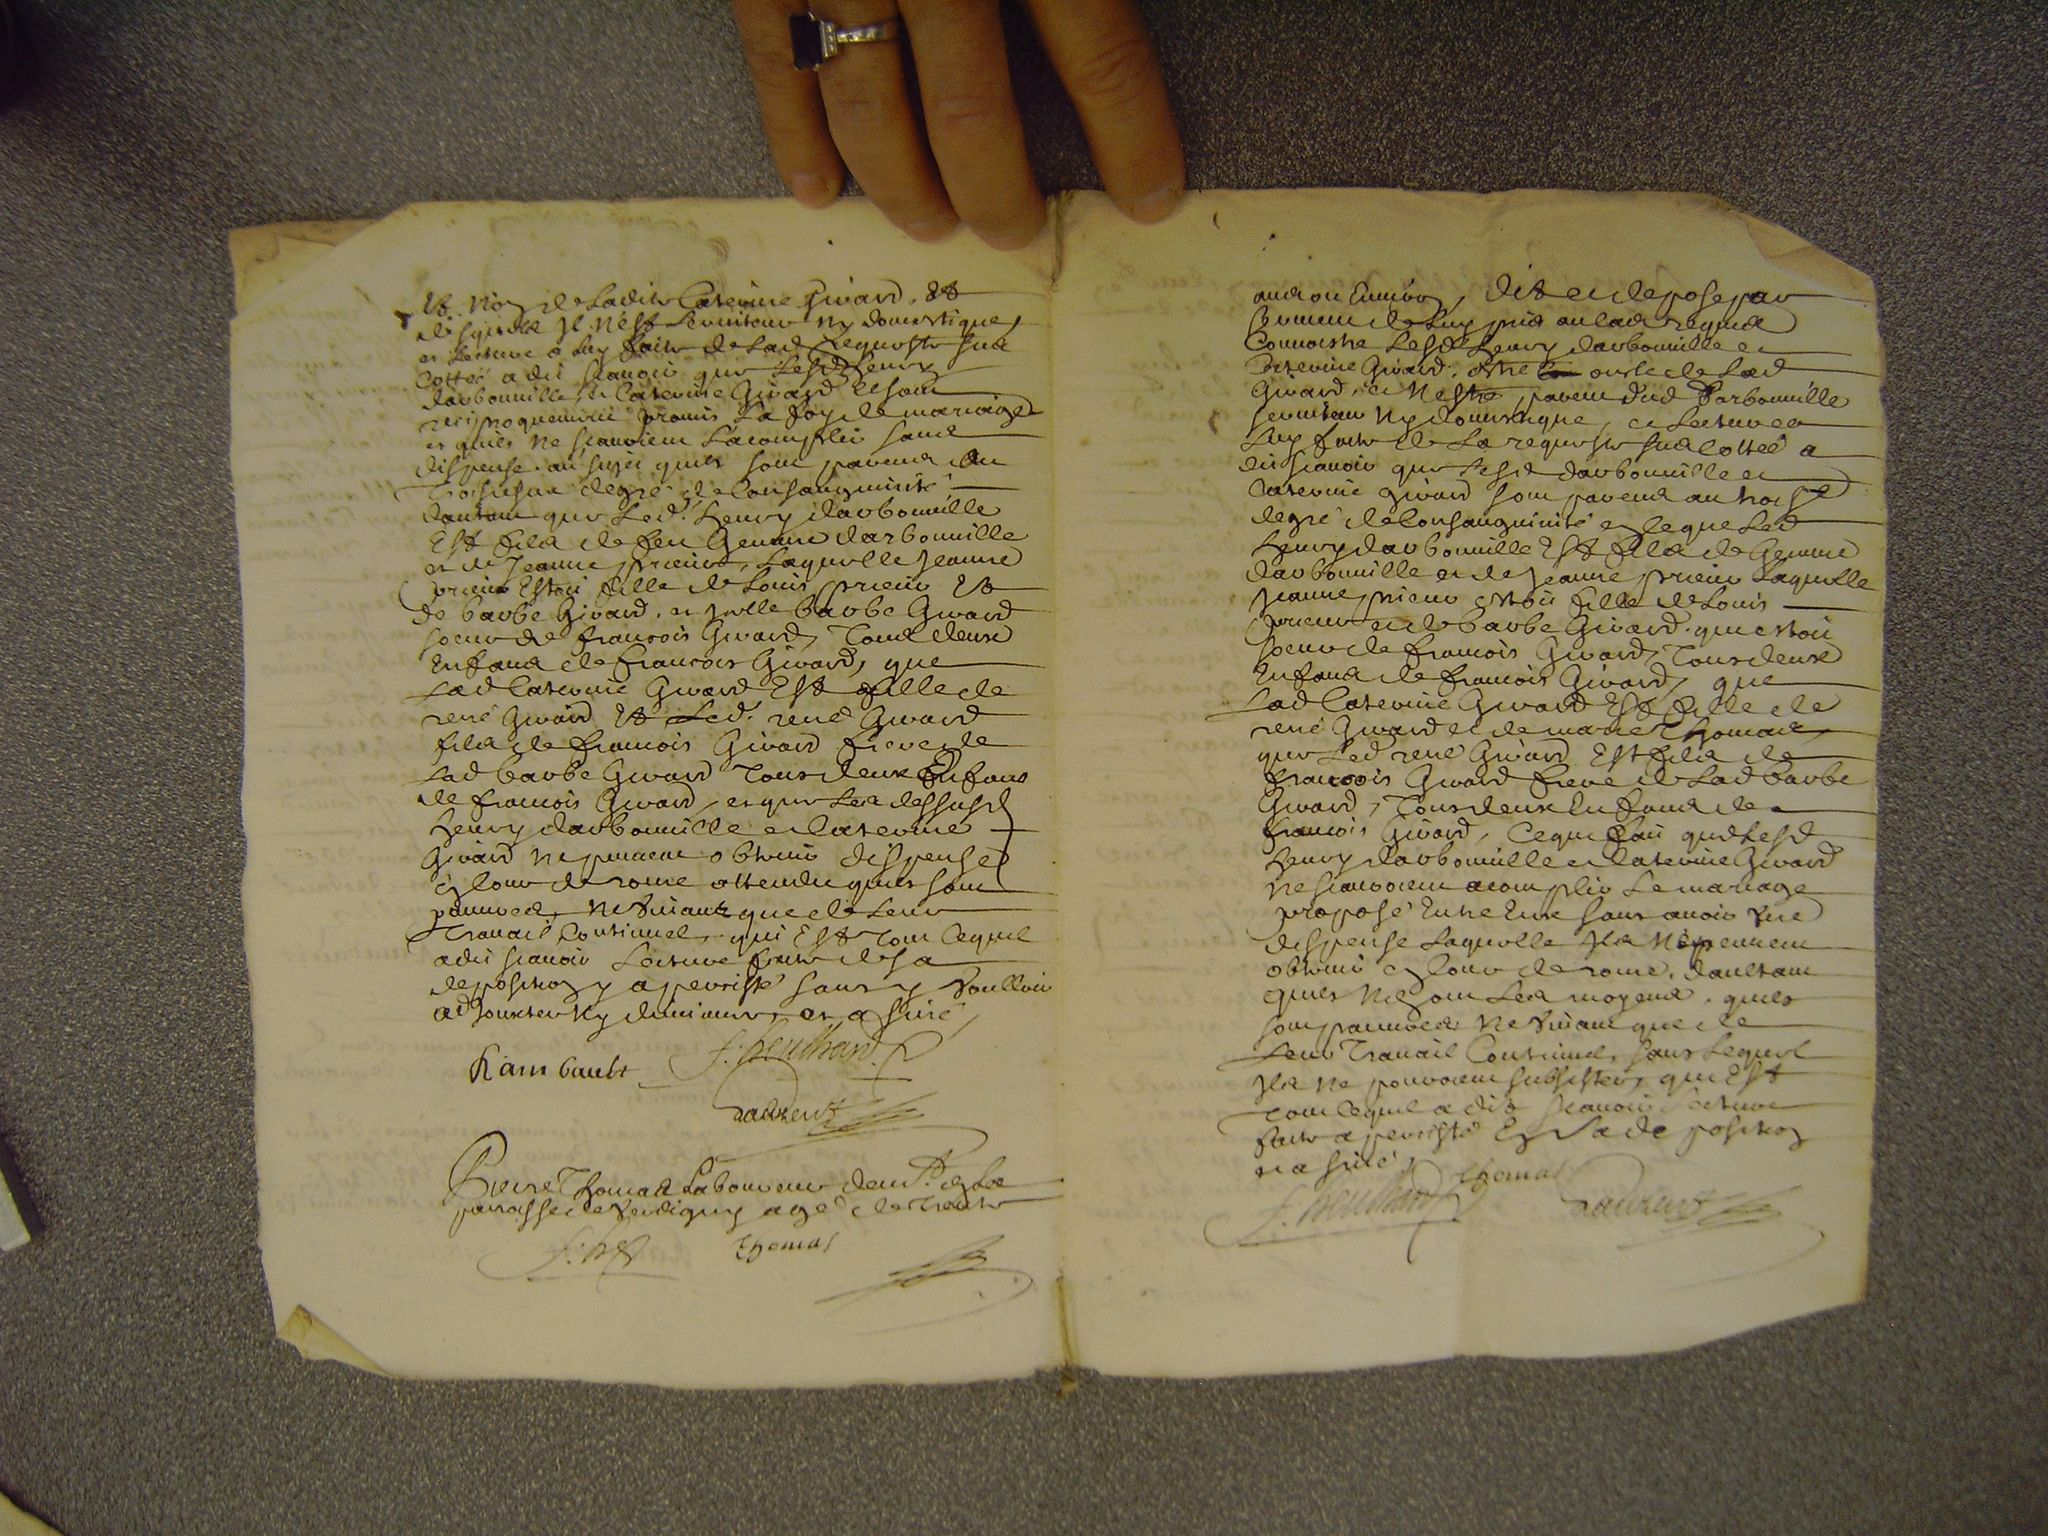 de Ladite Caterine Girard, Et
desquels Il N'est serviteur Ny domestique,
et Lecture a Luy faite de Lad requeste sus
Cottée a dit scauoir que Lesd henry
darbouuille et Caterine Girard se sont
reciproquement promis La foy de mariage
et quils ne scauroient L'acomplir sans
dispense au sujet quils sont parens au
Troisiesme degré de Consanguinité
dautant que Led. henry darbouuille
Est fils de feu darbouuille
et de Jeanne prieur, Laquelle Jeanne
prieur Estoit fille de Louis prieur Et
de barbe Girard, et Icelle barbe Girard
soeur de francois Girard, Tous deux
Enfans de francois Girard, que
Lad Caterine Girard Est fille de
rené Girard Et Led. rené Girard
fils de francois Girard frere de
Lad barbe Girard Tous deux Enfans
de francois Girard, et que Les dessusd
henry darbouuille et Caterine
Girard ne peuuent obtenir dispense
En Cour de rome attendu quils sont
pauures, Ne Viuant que de Leur
Trauail Continuel, qui Est Tout Cequil
a dit scauoir Lecture faite de sa
deposition y a percisté sans y Voulloir
adjouxter Ny diminuer, et a siné
Rambault
Laurent
Pierre Thomas Laboureur demt. En La
parroisse de Verdigny agé de Trente
Thomas
ans ou Enuiron, dit et depose par
serment de Luy pris au cas requis
Connoistre Lesd henry darbouuille et
Caterine Girard, estre oncle de Lad
Girard, et Nestre parent dud Darbouuille
seruiteur Ny domestique, et Lecture a
Luy faite de La requeste sus Cottée a
dit scauoir que Lesd darbouuille et
Caterine Girard sont parens au trois
degré de Consanguinité En ce que Led
henry darbouuille Est fils de
darbouuille et de Jeanne prieur Laquelle
Jeanne prieur estoit fille de Louis
prieur et de barbe Girard, qui estoit
soeur de francois Girard, Tous deux
Enfans de francois Girard, que
Lad Caterine Girard Est fille de
rené Girard et de marie Thomas,
que Led rené Girard Est fils de
francois Girard frere de Lad barbe
Girard, Tous deux Enfans de
francois Girard, Ce qui fait que Lesd
henry darbouuille et Caterine Girard
ne scauroient acomplir Le mariage
proposé Entre Eux sans auoir Vne
dispense Laquelle Ils Ne peuuent
obtenir En Cour de rome, daultant
quils N'En ont Les moyens, quils
sont pauures Ne Viuant que de
Leur Trauail Continuel, sans Lequel
Ils ne pouroient subsister, qui Est
Tout Cequil a dit scauoir Lecture
faite a percisté En sa deposition
et a siné,
Thomas
Laurent